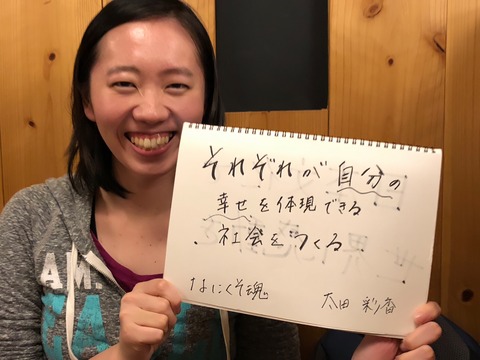 それぞれが自分の
幸せを体現できる
社会をつくる
なにくそ魂
太田 彩香
AM.